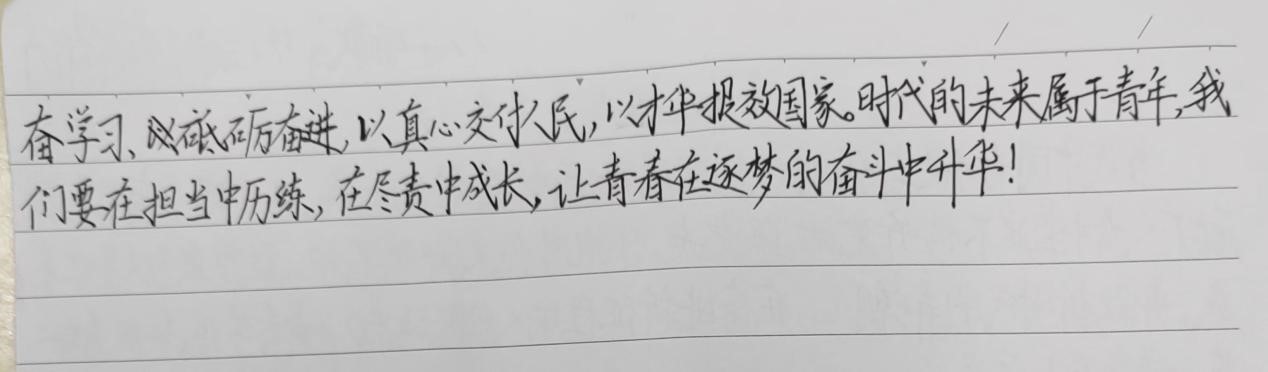 奋学习、以砥砺奋进,以真心交付人民,以才华报效国家。时代的未来属于青年,我
们要在担当中历练,在尽责中成长,让青春在逐梦的奋斗中升华!